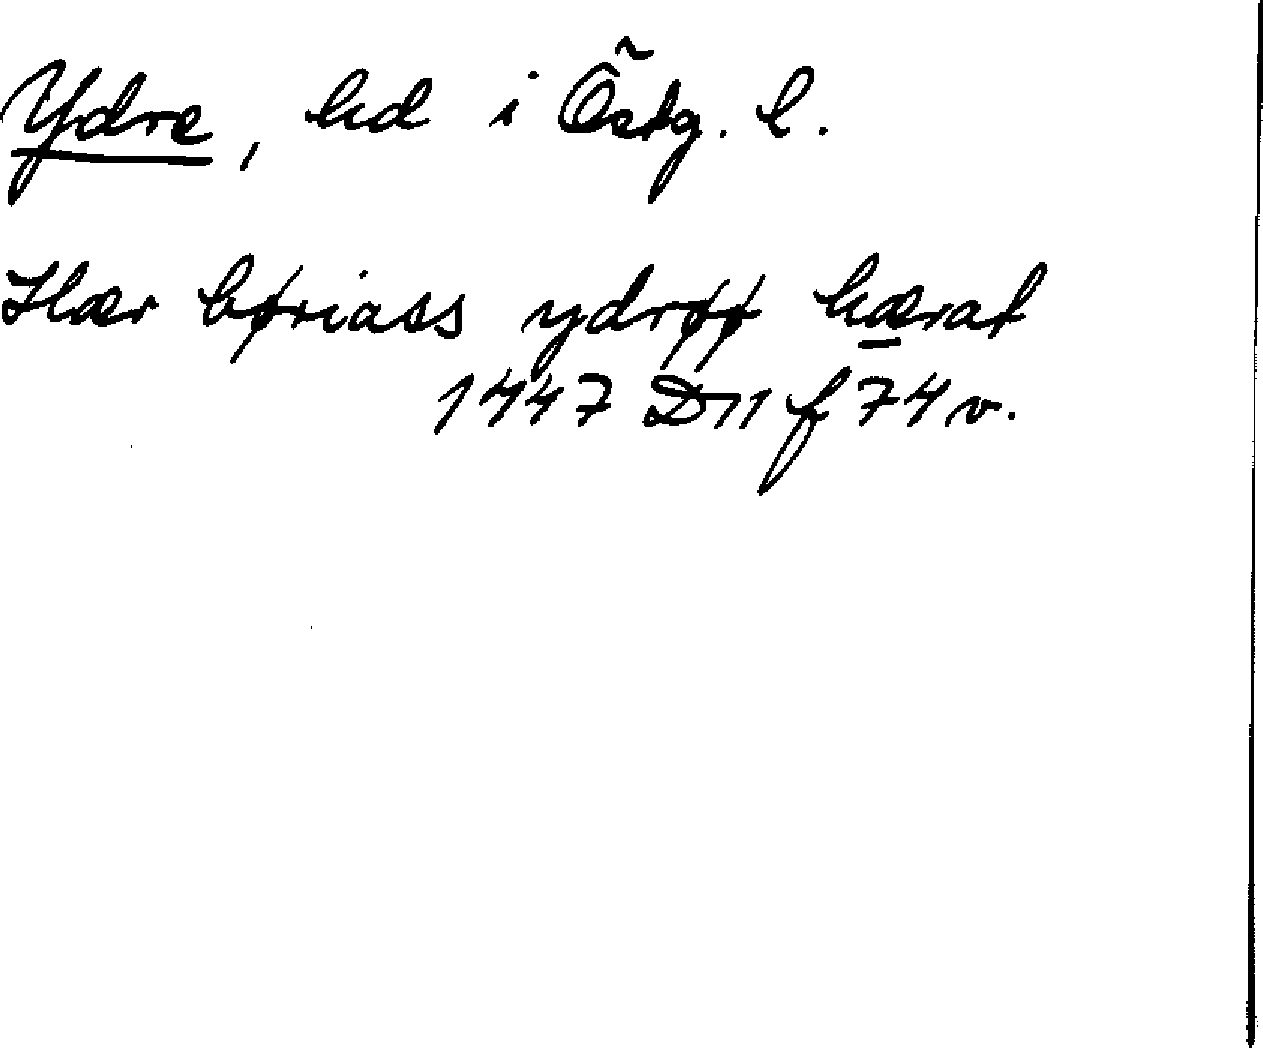 Ydre, hd i Östg. l.
Hær børiass ydrøø hærat
1447 D 11 f 74 v.